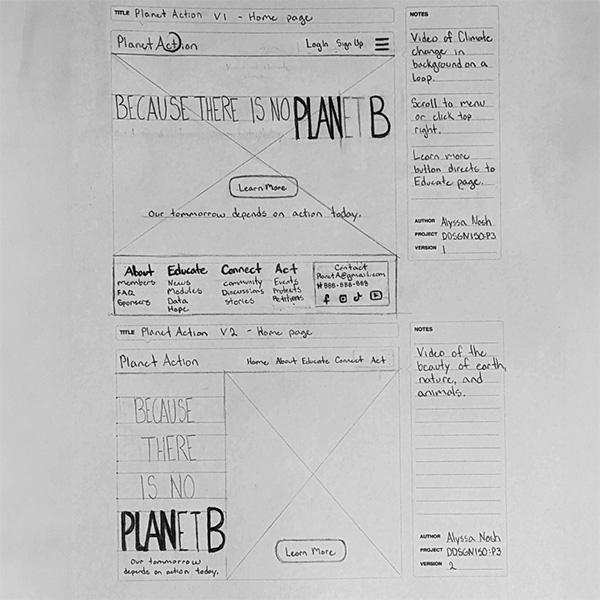 TITLE Planet Action V1 - Home page
Planet Action LogIn Sign Up
BECAUSE THERE IS NO PLANET B
Learn More
Our tommorrow depends on action today.
About Educate Connect Act
members News community Events
FAQ Modules Discussions Protests
Sponsors Data stories Petitions
Hope
Contact
PlanetA@gmail.com
#888-888-888
NOTES
Video of Climate
change in
background on a
loop.
Scroll to menu
or click top
right.
Learn more
button directs to
Educate page.
AUTHOR Alyssa Noch
PROJECT DDSGN150:P3
VERSION 1
TITLE Planet Action V2 - Home page
Planet Action Home About Educate Connect Act
BECAUSE
THERE
IS NO
PLANET B
Our tommorrow
depends on action today.
Learn More
NOTES
Video of the
beauty of earth,
nature, and
animals.
AUTHOR Alyssa Noch
PROJECT DDSGN150:P3
VERSION 2